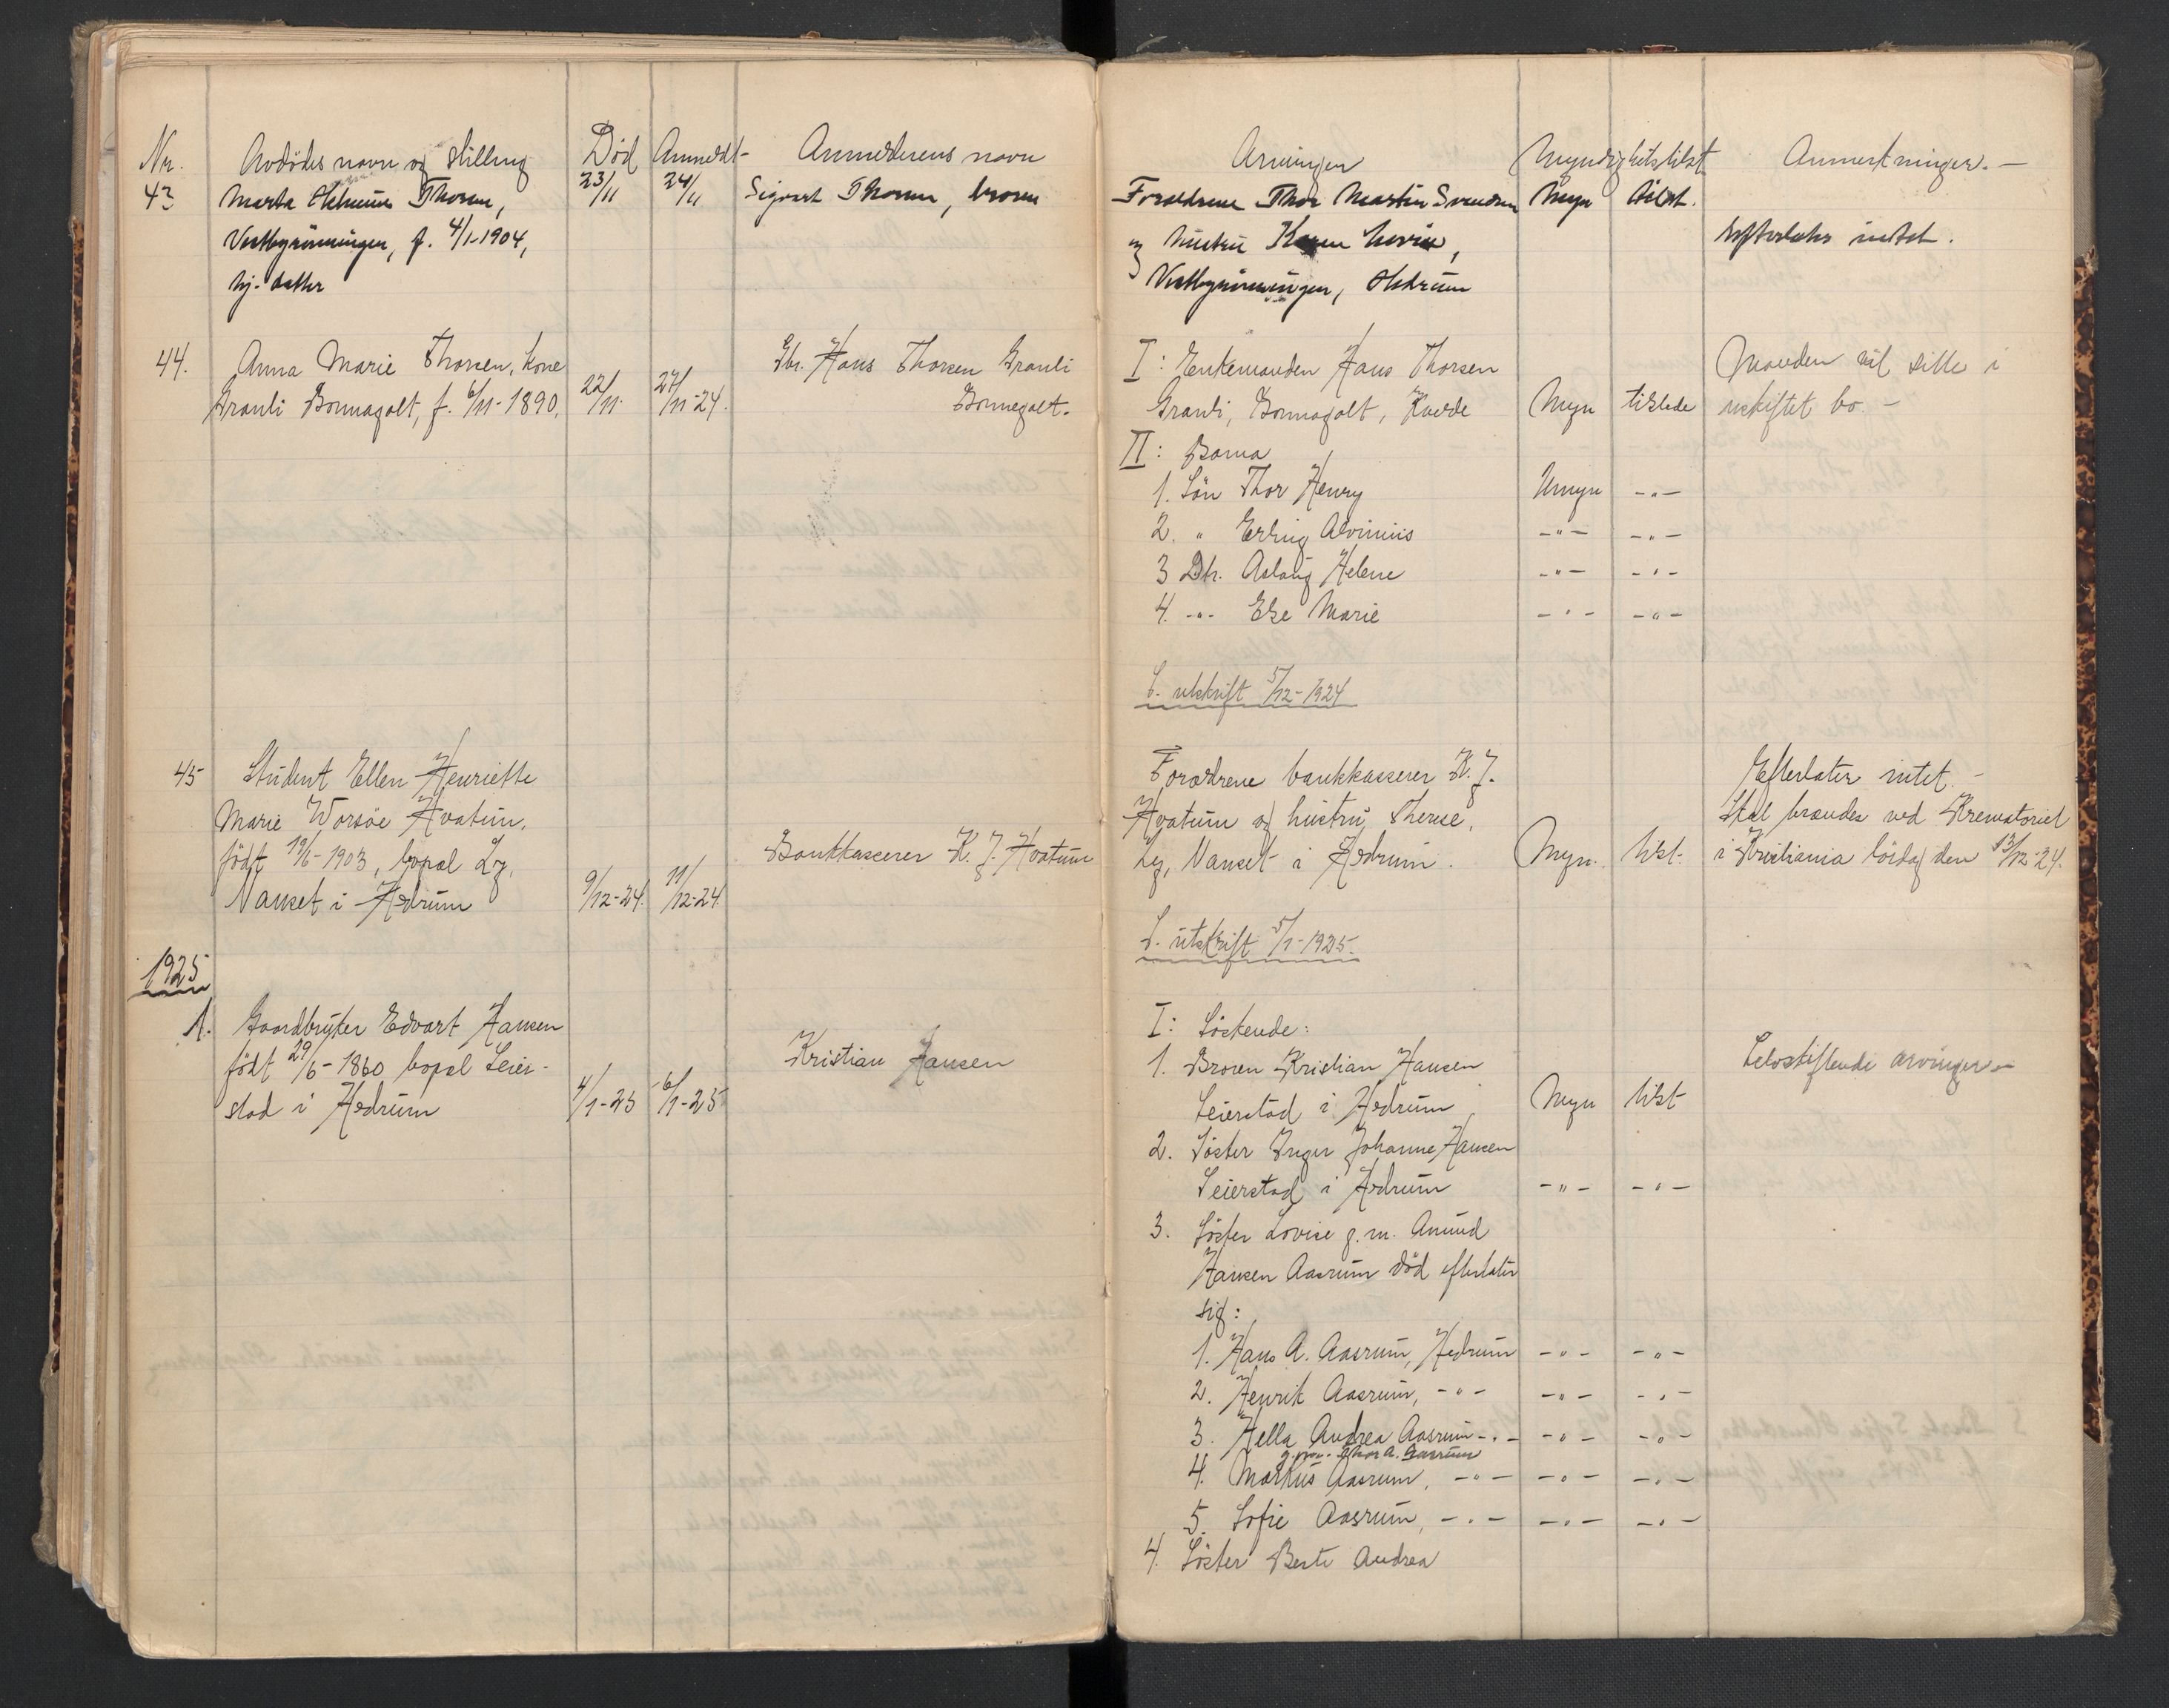 Nr. Avdödes navn og stilling Död Anmeldt- Anmelderens navn
43 Marta Thorsen, 23/11 24/11 Sigvart Thorsen, broren
f. 4/1-1904,
hj. datter
44. Anna Marie Thorsen, kone Gbr. Hans Thorsen Granli
Granli Bonnagolt, f. 6/11-1890, 22/11. 27/11-24. Bonnegolt.
45 Student Ellen Henriette
Marie Worsöe Hvatum,
födt 19/6-1903, bopæl Lz, Bankkasserer K. J. Hvatum
Nanset i Hedrum 9/12-24. 11/12-24.
1925
1. Gaardbruker Edvart Hansen
födt 29/6-1860 bopæl Seier- Kristian Hansen
stad i Hedrum 4/1-25 6/1-25
Arvinger Myndighet tilst. Anmerkninger.-
Forældrene Thor Martin Svendsen Myn tilst.
og hustru Karen Lovise, Efterlater intet.
Hedrum
I: Enkemanden Hans Thorsen Manden vil sitte i
Granli, Bonnagolt, Kvelde Myn tilstede uskiftet bo.-
II: Barna
1. Sön Thor Henry Umyn -"-
2. " Erling Alvinius -"- -"-
3 Dtr. Aslaug Helene -"- -"-
4. -"- Else Marie -"- -"-
S. utskrift 5/12-1924
Forældrene bankkasserer K. J. Efterlater intet.-
Hvatum og hustru Therese, Skal brændes ved Krematoriet
Lz, Nanset i Hedrum. Myn. tilst. i Kristiania lördag den 13/12-24.
S. utskrift 5/1-1925.
I: Söskende:
1. Broren Kristian Hansen Selvskiftende arvinger-
Seierstad i Hedrum, Myn tilst
2. Söster Inger Johanne Hansen
Seierstad i Hedrum -"- -"-
3. Söster Lovise g. m. Amund
Hansen Aasrum död efterlater
sig:
1. Hans A. Aasrum, Hedrum -"- -"-
2. Henrik Aasrum, -"- -"- -"-
3. Hella Andrea Aasrum -"- -"- -"-
g. m. Thor A. Aasrum
4. Markus Aasrum, -"- -"- -"-
5. Sofie Aasrum, -"- -"- -"-
4. Söster Berte Andrea